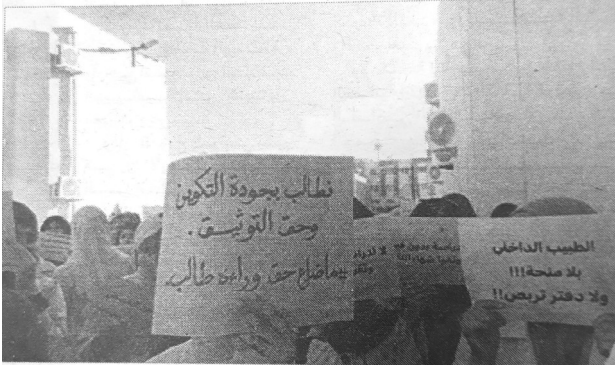 نطالب بجودة التكوين
وحق التوثيق.
ماضاع حق وراءه طالب
الطبيب الداخلي
بلا منحة!!!
ولا دفتر تربص!!
لا
بدون